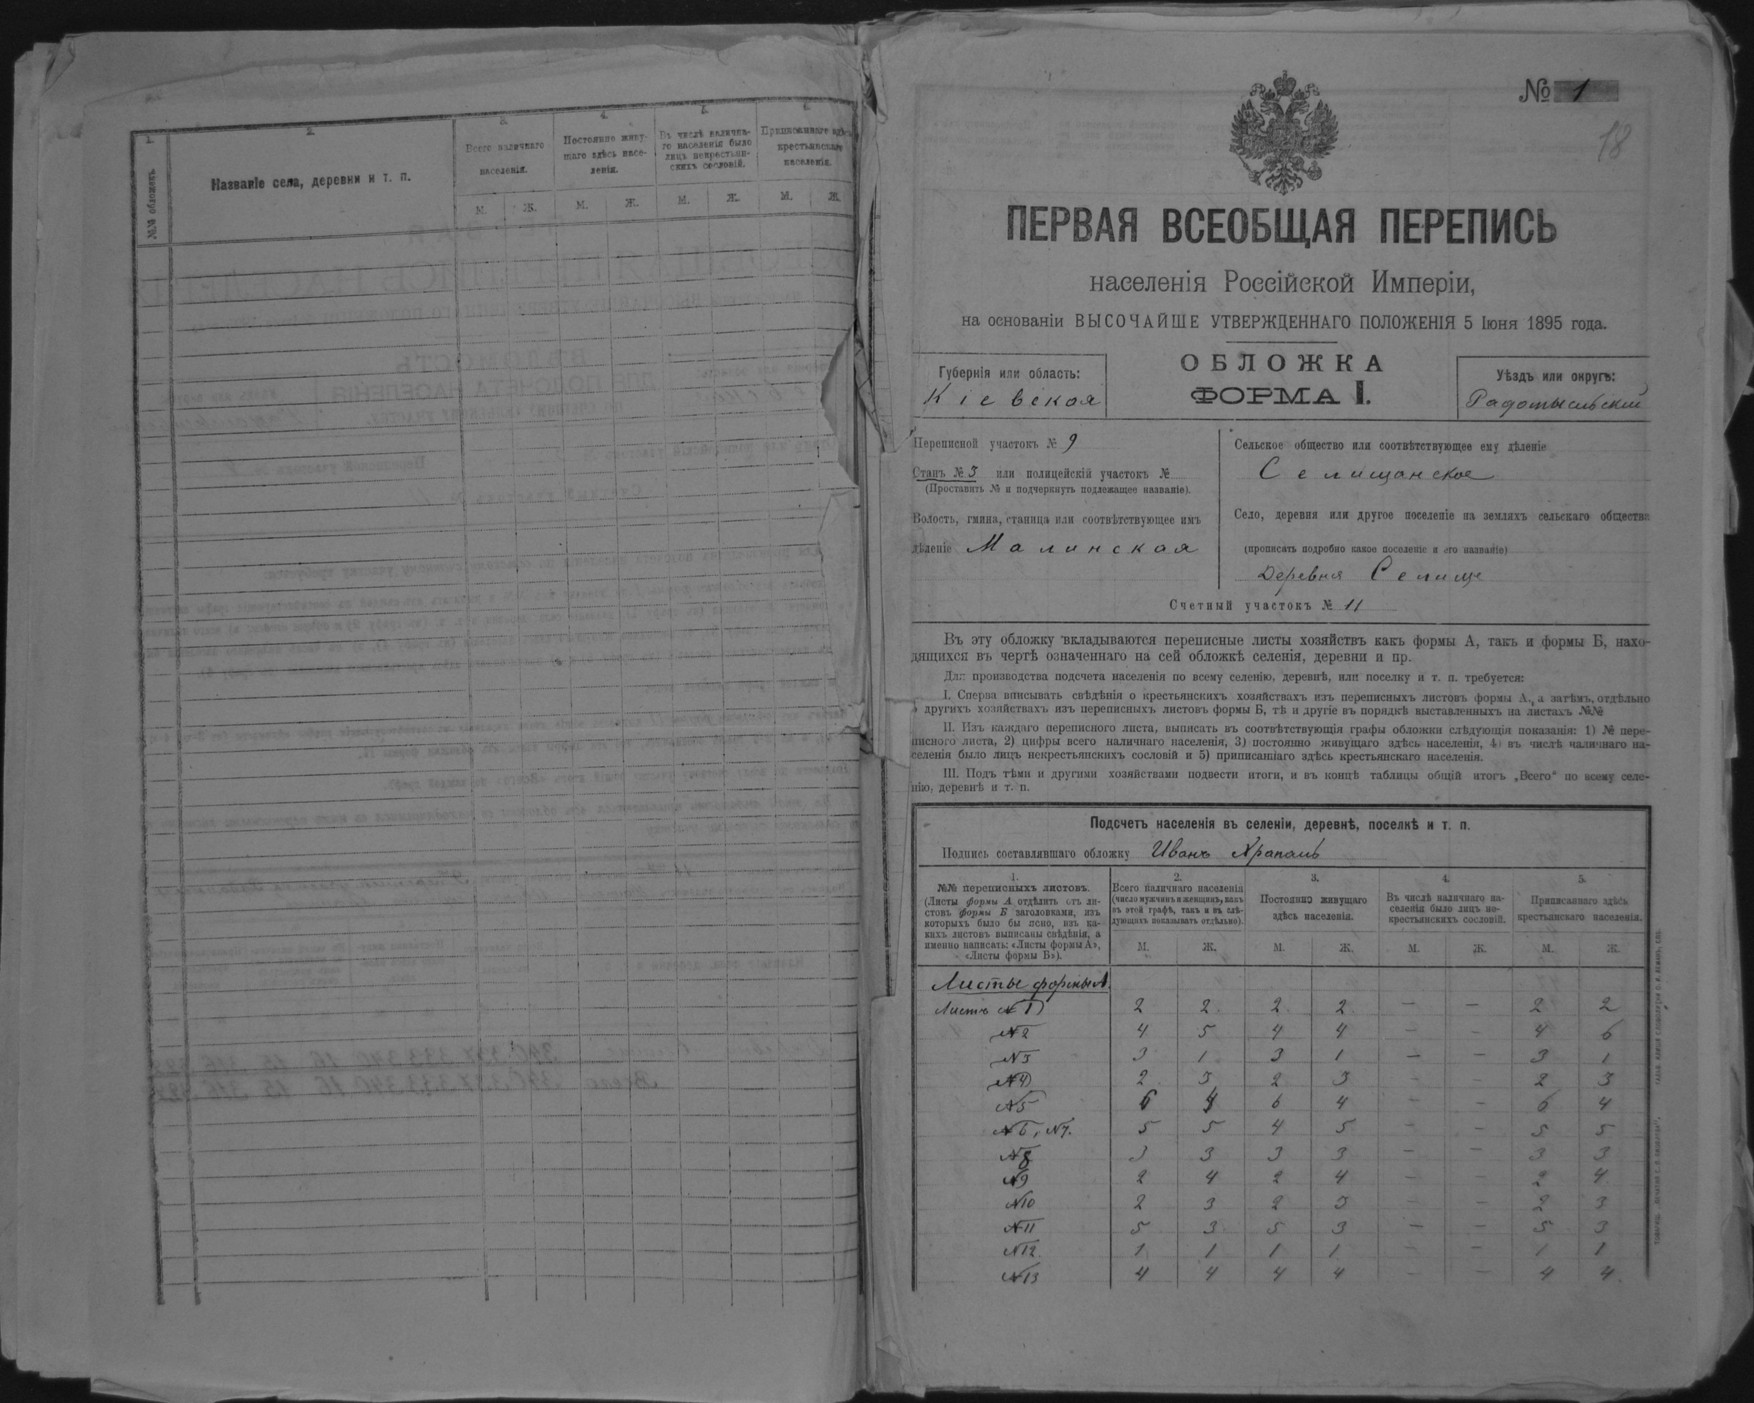 1.
№№ обложекъ.
2.
Названіе села, деревни и т. п.
3.
Всего наличнаго
населенія.
М. Ж.
4.
Постоянно живу-
щаго здѣсь насе-
ленія.
М. Ж.
5.
Въ числѣ налична-
го населенія было
лицъ некрестьян-
скихъ сословій.
М. Ж.
6.
Приписаннаго здѣсь
крестьянскаго
населенія.
М. Ж.
№ 1
18
ПЕРВАЯ ВСЕОБЩАЯ ПЕРЕПИСЬ
населенія Россійской Имперіи,
на основаніи ВЫСОЧАЙШЕ УТВЕРЖДЕННАГО ПОЛОЖЕНІЯ 5 Іюня 1895 года.
ОБЛОЖКА
ФОРМА I.
Губернія или область:
Кіевская
Уѣздъ или округъ:
Радомысльскій
Переписной участокъ № 9
Станъ № 3 или полицейскій участокъ №
(Проставить № и подчеркнуть подлежащее названіе).
Волость, гмина, станица или соотвѣтствующее имъ
дѣленіе Малинская
Сельское общество или соотвѣтствующее ему дѣленіе
Селищанское
Село, деревня или другое поселеніе на земляхъ сельскаго общества
(прописать подробно какое поселеніе и его названіе)
Деревня Селище
Счетный участокъ № 11
Въ эту обложку вкладываются переписные листы хозяйствъ какъ формы А, такъ и формы Б, нахо-
дящихся въ чертѣ означеннаго на сей обложкѣ селенія, деревни и пр.
Для производства подсчета населенія по всему селенію, деревнѣ, или поселку и т. п. требуется:
I. Сперва вписывать свѣдѣнія о крестьянскихъ хозяйствахъ изъ переписныхъ листовъ формы А, а затѣмъ, отдѣльно
о другихъ хозяйствахъ изъ переписныхъ листовъ формы Б, тѣ и другіе въ порядкѣ выставленныхъ на листахъ №№
II. Изъ каждаго переписного листа, выписать въ соотвѣтствующія графы обложки слѣдующія показанія: 1) № пере-
писного листа, 2) цифры всего наличнаго населенія, 3) постоянно живущаго здѣсь населенія, 4) въ числѣ наличнаго на-
селенія было лицъ некрестьянскихъ сословій и 5) приписаннаго здѣсь крестьянскаго населенія.
III. Подъ тѣми и другими хозяйствами подвести итоги, и въ концѣ таблицы общій итогъ „Всего“ по всему селе-
нію, деревнѣ и т. п.
Подсчетъ населенія въ селеніи, деревнѣ, поселкѣ и т. п.
Подпись составлявшаго обложку Иванъ
1.
№№ переписныхъ листовъ.
(Листы формы А отдѣлить отъ ли-
стовъ формы Б заголовками, изъ
которыхъ было бы ясно, изъ ка-
кихъ листовъ выписаны свѣдѣнія, а
именно написать: «Листы формы А»,
«Листы формы Б»).
2.
Всего наличнаго населенія
(число мужчинъ и женщинъ, какъ
въ этой графѣ, такъ и въ слѣ-
дующихъ показывать отдѣльно).
М. Ж.
3.
Постоянно живущаго
здѣсь населенія.
М. Ж.
4.
Въ числѣ наличнаго на-
селенія было лицъ не-
крестьянскихъ сословій.
М. Ж.
5.
Приписаннаго здѣсь
крестьянскаго населенія.
М. Ж.
Листы формы А.
Листъ №1 2 2 2 2 — — 2 2
№2 4 5 4 4 — — 4 6
№3 3 1 3 1 — — 3 1
№4 2 3 2 3 — — 2 3
№5 6 4 6 4 — — 6 4
№6, №7. 5 5 4 5 — — 5 5
№8 3 3 3 3 — — 3 3
№9 2 4 2 4 — — 2 4
№10 2 3 2 3 — — 2 3
№11 5 3 5 3 — — 5 3
№12 1 1 1 1 — — 1 1
№13 4 4 4 4 — — 4 4